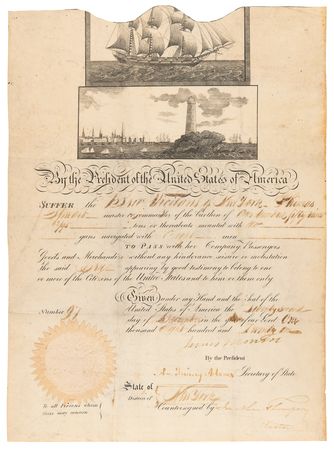 By the President of the United States of America
SUFFER the Brig of New York
master or commander of the burthen of One hundred fifty
tons or thereabouts mounted with no
guns navigated with men
TO PASS with her Company Passengers
Goods and Merchandize without any hinderance seizure or molestation
the said Brig appearing by good testimony to belong to one
or more of the Citizens of the United States and to him or them only
Given under my Hand and the Seal of the
United States of America the
day of in the year of our Lord One
thousand Eight hundred and twenty
James Monroe
By the President
Number 97
John Quincy Adams Secretary of State
State of
District of New York
Countersigned by Thompson
To all Persons whom
these may concern